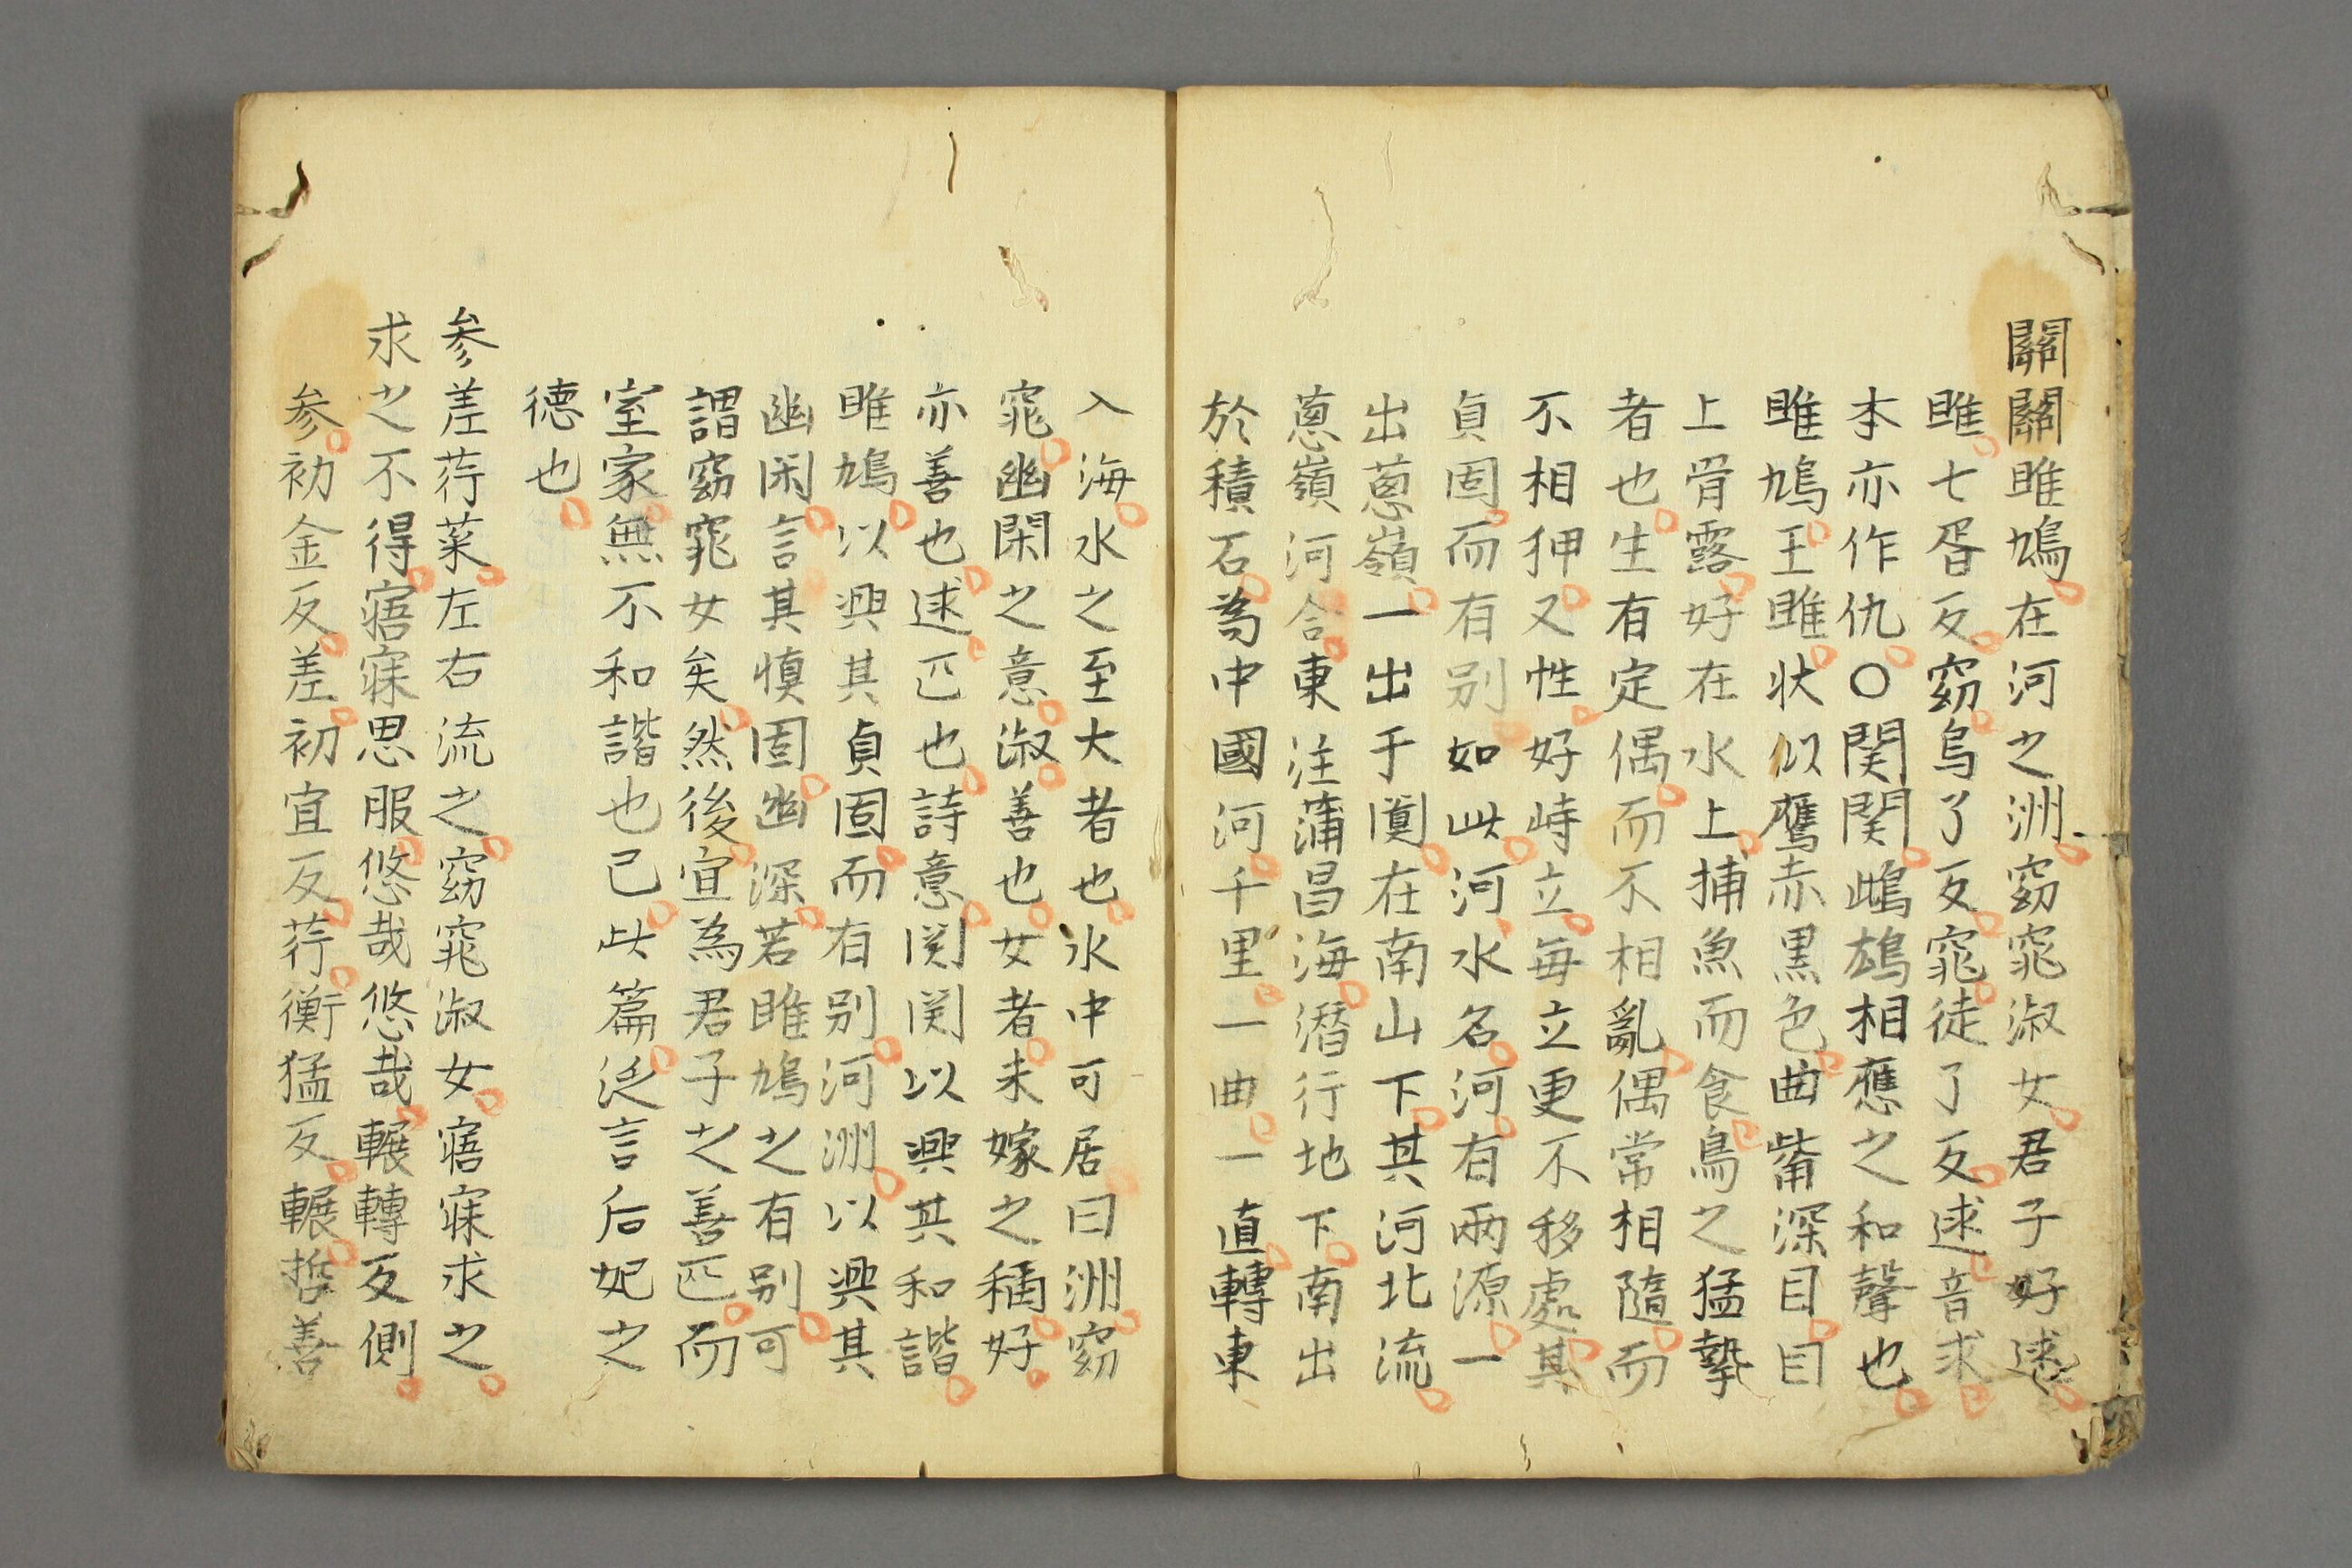 關關雎鳩在河之洲窈窕淑女君子好逑
雎七胥反窈烏了反窕徒了反逑音求
本亦作仇〇関関鴡鴆相應之和聲也
雎鳩王雎状似鷹赤黒色曲觜深目目
上骨露好在水上捕魚而食鳥之猛摯
者也生有定偶而不相亂偶常相隨而
不相狎又性好峙立毎立更不移處其
貞固而有别如此河水名河有兩源一
出蔥嶺一出于闐在南山下其河北流
蔥嶺河合東注蒲昌海潛行地下南出
於積石為中國河千里一曲一直轉東
入海水之至大者也水中可居曰洲窈
窕幽閑之意淑善也女者未嫁之稱好
亦善也逑匹也詩意関関以興其和諧
雎鳩以興其貞固而有别河洲以興其
幽閑言其慎固幽深若雎鳩之有别可
謂窈窕女矣然後宜為君子之善匹而
室家無不和諧也已此篇泛言后妃之
德也
参差荇菜左右流之窈窕淑女寤寐求之
求之不得寤寐思服悠哉悠哉輾轉反側
参初金反差初宜反荇衡猛反輾哲善